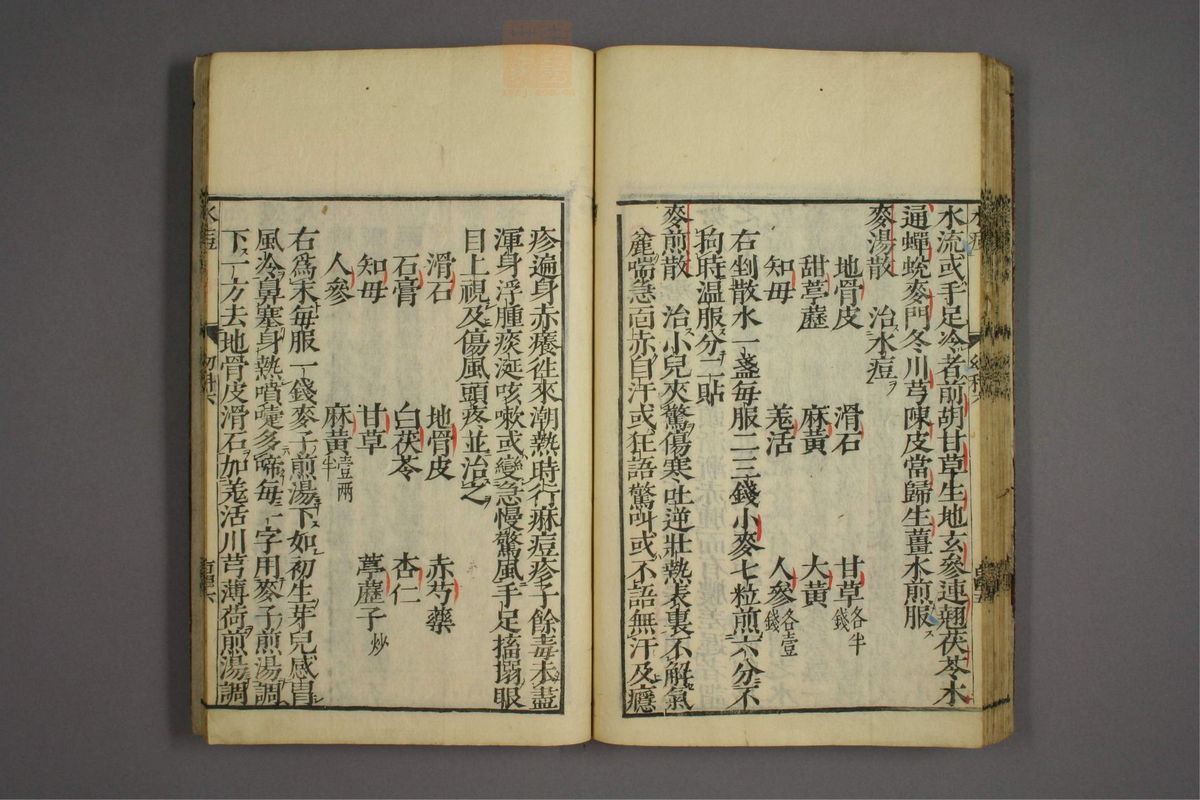 水流或手足冷者前胡甘草生地玄參連翹茯苓木
通蟬蛻麥門冬川芎陳皮當歸生薑水煎服
麥湯散　治水痘
地骨皮　滑石　甘草各半錢
甜葶藶　麻黃　大黃
知母　羗活　人參各壹錢
右剉散水一盞每服二三錢小麥七粒煎六分不
拘時温服分二貼
麥煎散　治小兒夾驚傷寒吐逆壯熱表裏不解氣
麄喘急面赤自汗或狂語驚叫或不語無汗及癮
疹遍身赤癢徃來潮熱時行痳痘疹子餘毒未盡
渾身浮腫痰涎咳嗽或變急慢驚風手足搐搦眼
目上視及傷風頭疼並治之
滑石　地骨皮　赤芍藥
石膏　白茯苓　杏仁
知母　甘草　葶藶子炒
人參　麻黃壹兩半
右爲末每服一錢麥子煎湯下如初生芽兒感冒
風冷鼻塞身熱噴嚏多啼每一字用麥子煎湯調
下一方去地骨皮滑石加羗活川芎薄荷煎湯調
水痘
幼科六